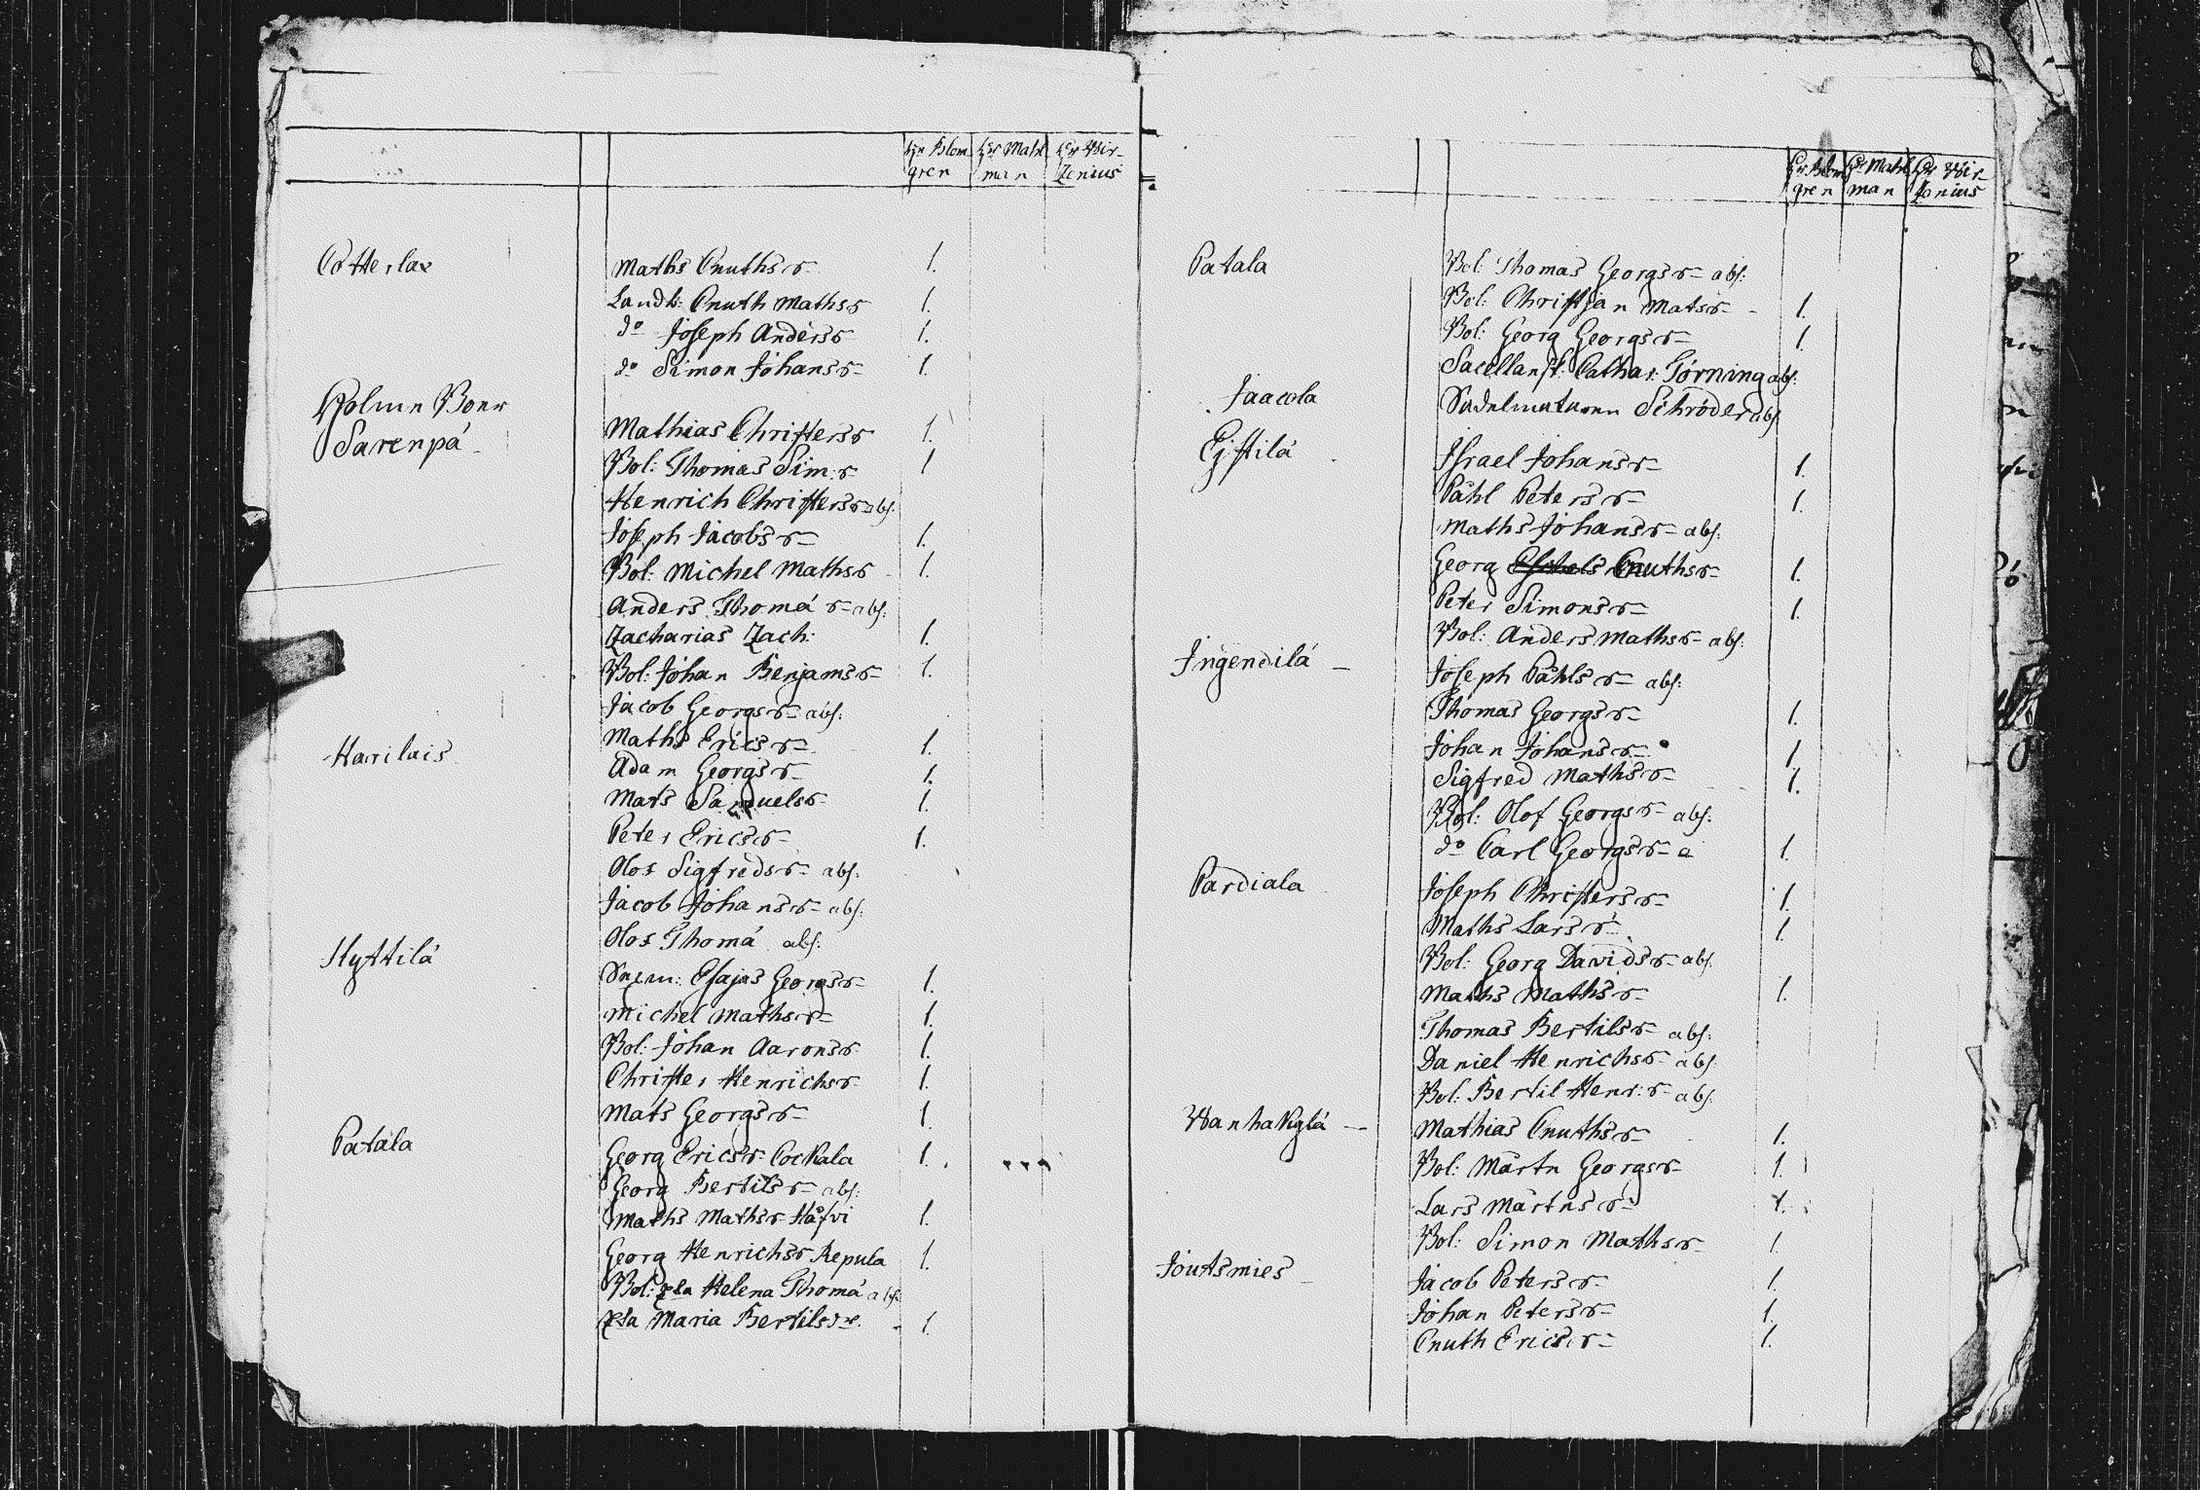 Hr Blom Hr Mahl Hr Wir-
gren man zenius
Cotterlax Maths Cnuthss 1.
Landb: Cnuth Mathss 1.
do Joseph Anderss 1.
do Simon Johanss 1.
Holmn Boer
Sarenpä Mathias Christerss 1.
Bol: Thomas Sim:s 1
Henrich Christerss abs:
Joseph Jacobss 1.
Bol: Michel Mathss 1.
Anders Thomæ s abs:
Zacharias Zach: 1.
Bol: Johan Benjamss 1.
Jacob Georgss abs:
Harilais Maths Ericss 1.
Adam Georgss 1.
Mats Samuelss 1.
Peter Ericss 1.
Olof Sigfredss abs:
Jacob Johanss abs:
Hyttilä Olof Thomæ abs:
Esajas Georgss 1.
Michel Mathss 1.
Bol: Johan Aaronss 1.
Christer Henrichss 1.
Mats Georgss 1.
Patala Georg Ericss Cockala 1.
Georg Bertilss abs:
Maths Mathss Håfvi 1.
Georg Henrichss Repula 1.
Bol: Helena Thomæ abs.
Maria Bertilsdr 1.
Hr Blom Hr Mahl Hr Wir-
gren man zenius
Patala Bol: Thomas Georgss abs:
Bol: Christjan Matss 1.
Bol: Georg Georgss 1.
Sacellansk: Cathar: Törning abs:
Jaacola Sadelmakaren Schröder abs.
Ejstilä Israel Johanss 1.
Påhl Peterss 1.
Maths Johanss abs:
Georg Cnuthss 1.
Peter Simonss 1.
Bol: Anders Mathss abs:
Ingendilä Joseph Påhlss abs:
Thomas Georgss 1.
Johan Johanss 1.
Sigfred Mathss 1.
Bol: Olof Georgss abs:
do Carl Georgss a 1.
Pardiala Joseph Christerss 1.
Maths Larss 1.
Bol: Georg Davidss abs.
Maths Mathss 1.
Thomas Bertilss abs:
Daniel Henrichss abs:
Bol: Bertil Henr:s abs:
Wanhakylä Mathias Cnuthss 1.
Bol: Mårtn Georgss 1.
Lars Mårtnss 1.
Bol: Simon Mathss 1.
Joutsmies Jacob Peterss 1.
Johan Peterss 1.
Cnuth Ericss 1.